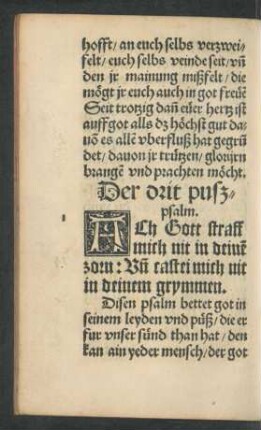 hofft/ an euch selbs verzwei-
felt/ euch selbs veinde seit/ vñ
den jr mainung mißfelt/ die
mögt jr euch auch in got freüē
Seit trotzig dañ eüer hertz ist
auff got alls dz höchst gut da-
uō es allē vberfluß hat gegrü
det/ dauon jr trützen/ glorijrn
brangē vnd prachten möcht.
Der drit pusz-
psalm.
ACh Gott straff
mich nit in deinē
zorn: Vñ castei mich nit
in deinem grymmen.
Disen psalm bettet got in
seinem leyden vnd püß/ die er
fur vnser sünd than hat/ den
kan ain yeder mensch/ der got